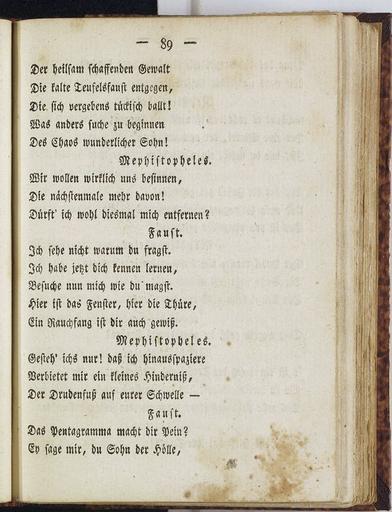 — 89 —
Der heilsam schaffenden Gewalt
Die kalte Teufelsfaust entgegen,
Die sich vergebens tückisch ballt!
Was anders suche zu beginnen
Des Chaos wunderlicher Sohn!
Mephistopheles.
Wir wollen wirklich uns besinnen,
Die nächstenmale mehr davon!
Dürft' ich wohl diesmal mich entfernen?
Faust.
Ich sehe nicht warum du fragst.
Ich habe jetzt dich kennen lernen,
Besuche nun mich wie du magst.
Hier ist das Fenster, hier die Thüre,
Ein Rauchfang ist dir auch gewiß.
Mephistopheles.
Gesteh' ichs nur! daß ich hinausspaziere
Verbietet mir ein kleines Hinderniß,
Der Drudenfuß auf eurer Schwelle —
Faust.
Das Pentagramma macht dir Pein?
Ey sage mir, du Sohn der Hölle,